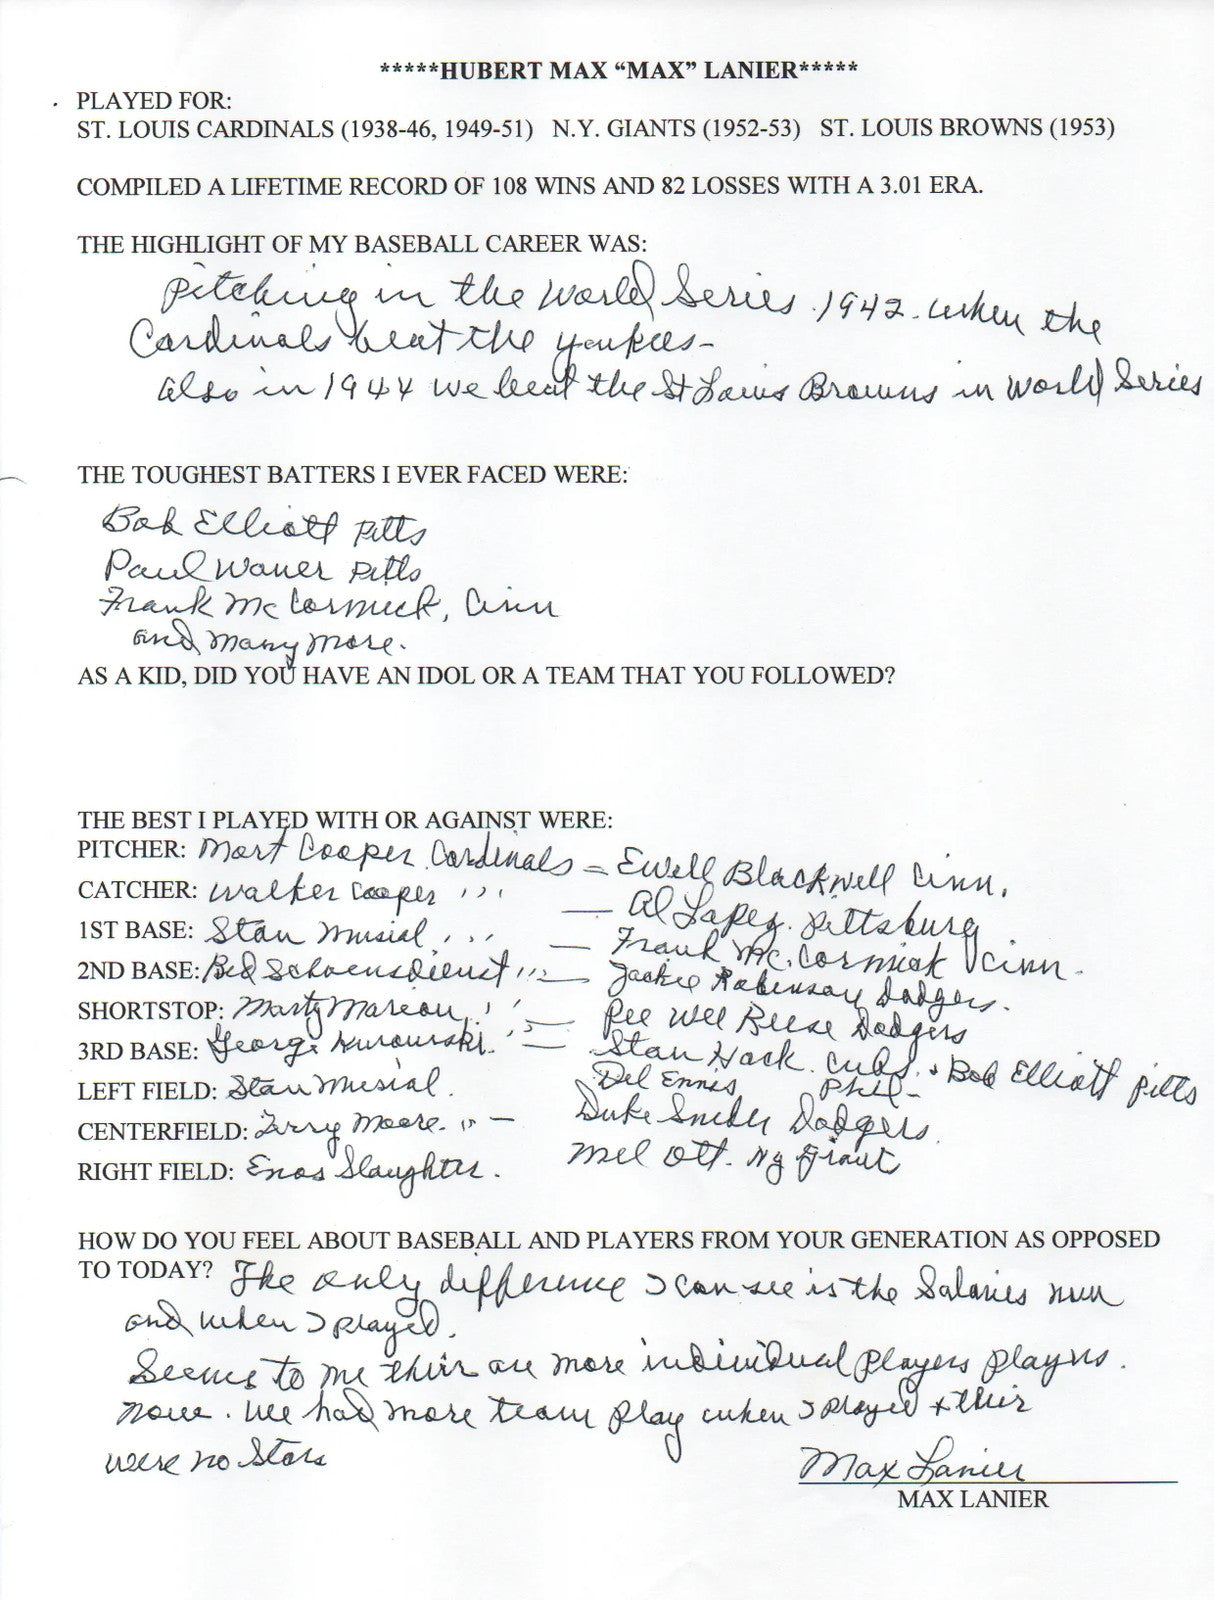 *****HUBERT MAX “MAX” LANIER*****
PLAYED FOR:
ST. LOUIS CARDINALS (1938-46, 1949-51) N.Y. GIANTS (1952-53) ST. LOUIS BROWNS (1953)
COMPILED A LIFETIME RECORD OF 108 WINS AND 82 LOSSES WITH A 3.01 ERA.
THE HIGHLIGHT OF MY BASEBALL CAREER WAS:
Pitching in the World Series. 1942. when the
Cardinals beat the yankees-
Also in 1944 we beat the St Louis Browns in World Series
THE TOUGHEST BATTERS I EVER FACED WERE:
Bob Elliott Pitts
Paul Waner Pitts
Frank McCormick, Cinn
and many more.
AS A KID, DID YOU HAVE AN IDOL OR A TEAM THAT YOU FOLLOWED?
THE BEST I PLAYED WITH OR AGAINST WERE:
PITCHER: Mort Cooper Cardinals = Ewell Blackwell Cinn.
CATCHER: Walker Cooper ,,, — Al Lopez. Pittsburg
1ST BASE: Stan Musial ,,, — Frank Mc.Cormick Cinn.
2ND BASE: Red Schoensdienst ,,, — Jackie Robinson Dodgers.
SHORTSTOP: Marty Marion ,, — Pee Wee Reese Dodgers
3RD BASE: George Kurowski. ,, — Stan Hack. Cubs. + Bob Elliott Pitts
LEFT FIELD: Stan Musial. Del Ennis Phil-
CENTERFIELD: Terry Moore. ,, — Duke Snider Dodgers.
RIGHT FIELD: Enos Slaughter. Mel Ott. Ny Giant
HOW DO YOU FEEL ABOUT BASEBALL AND PLAYERS FROM YOUR GENERATION AS OPPOSED
TO TODAY? The only difference I can see is the Salaries now
and when I played.
Seems to me their are more individual players players.
now. We had more team play when I played + their
were no Stars
Max Lanier
MAX LANIER